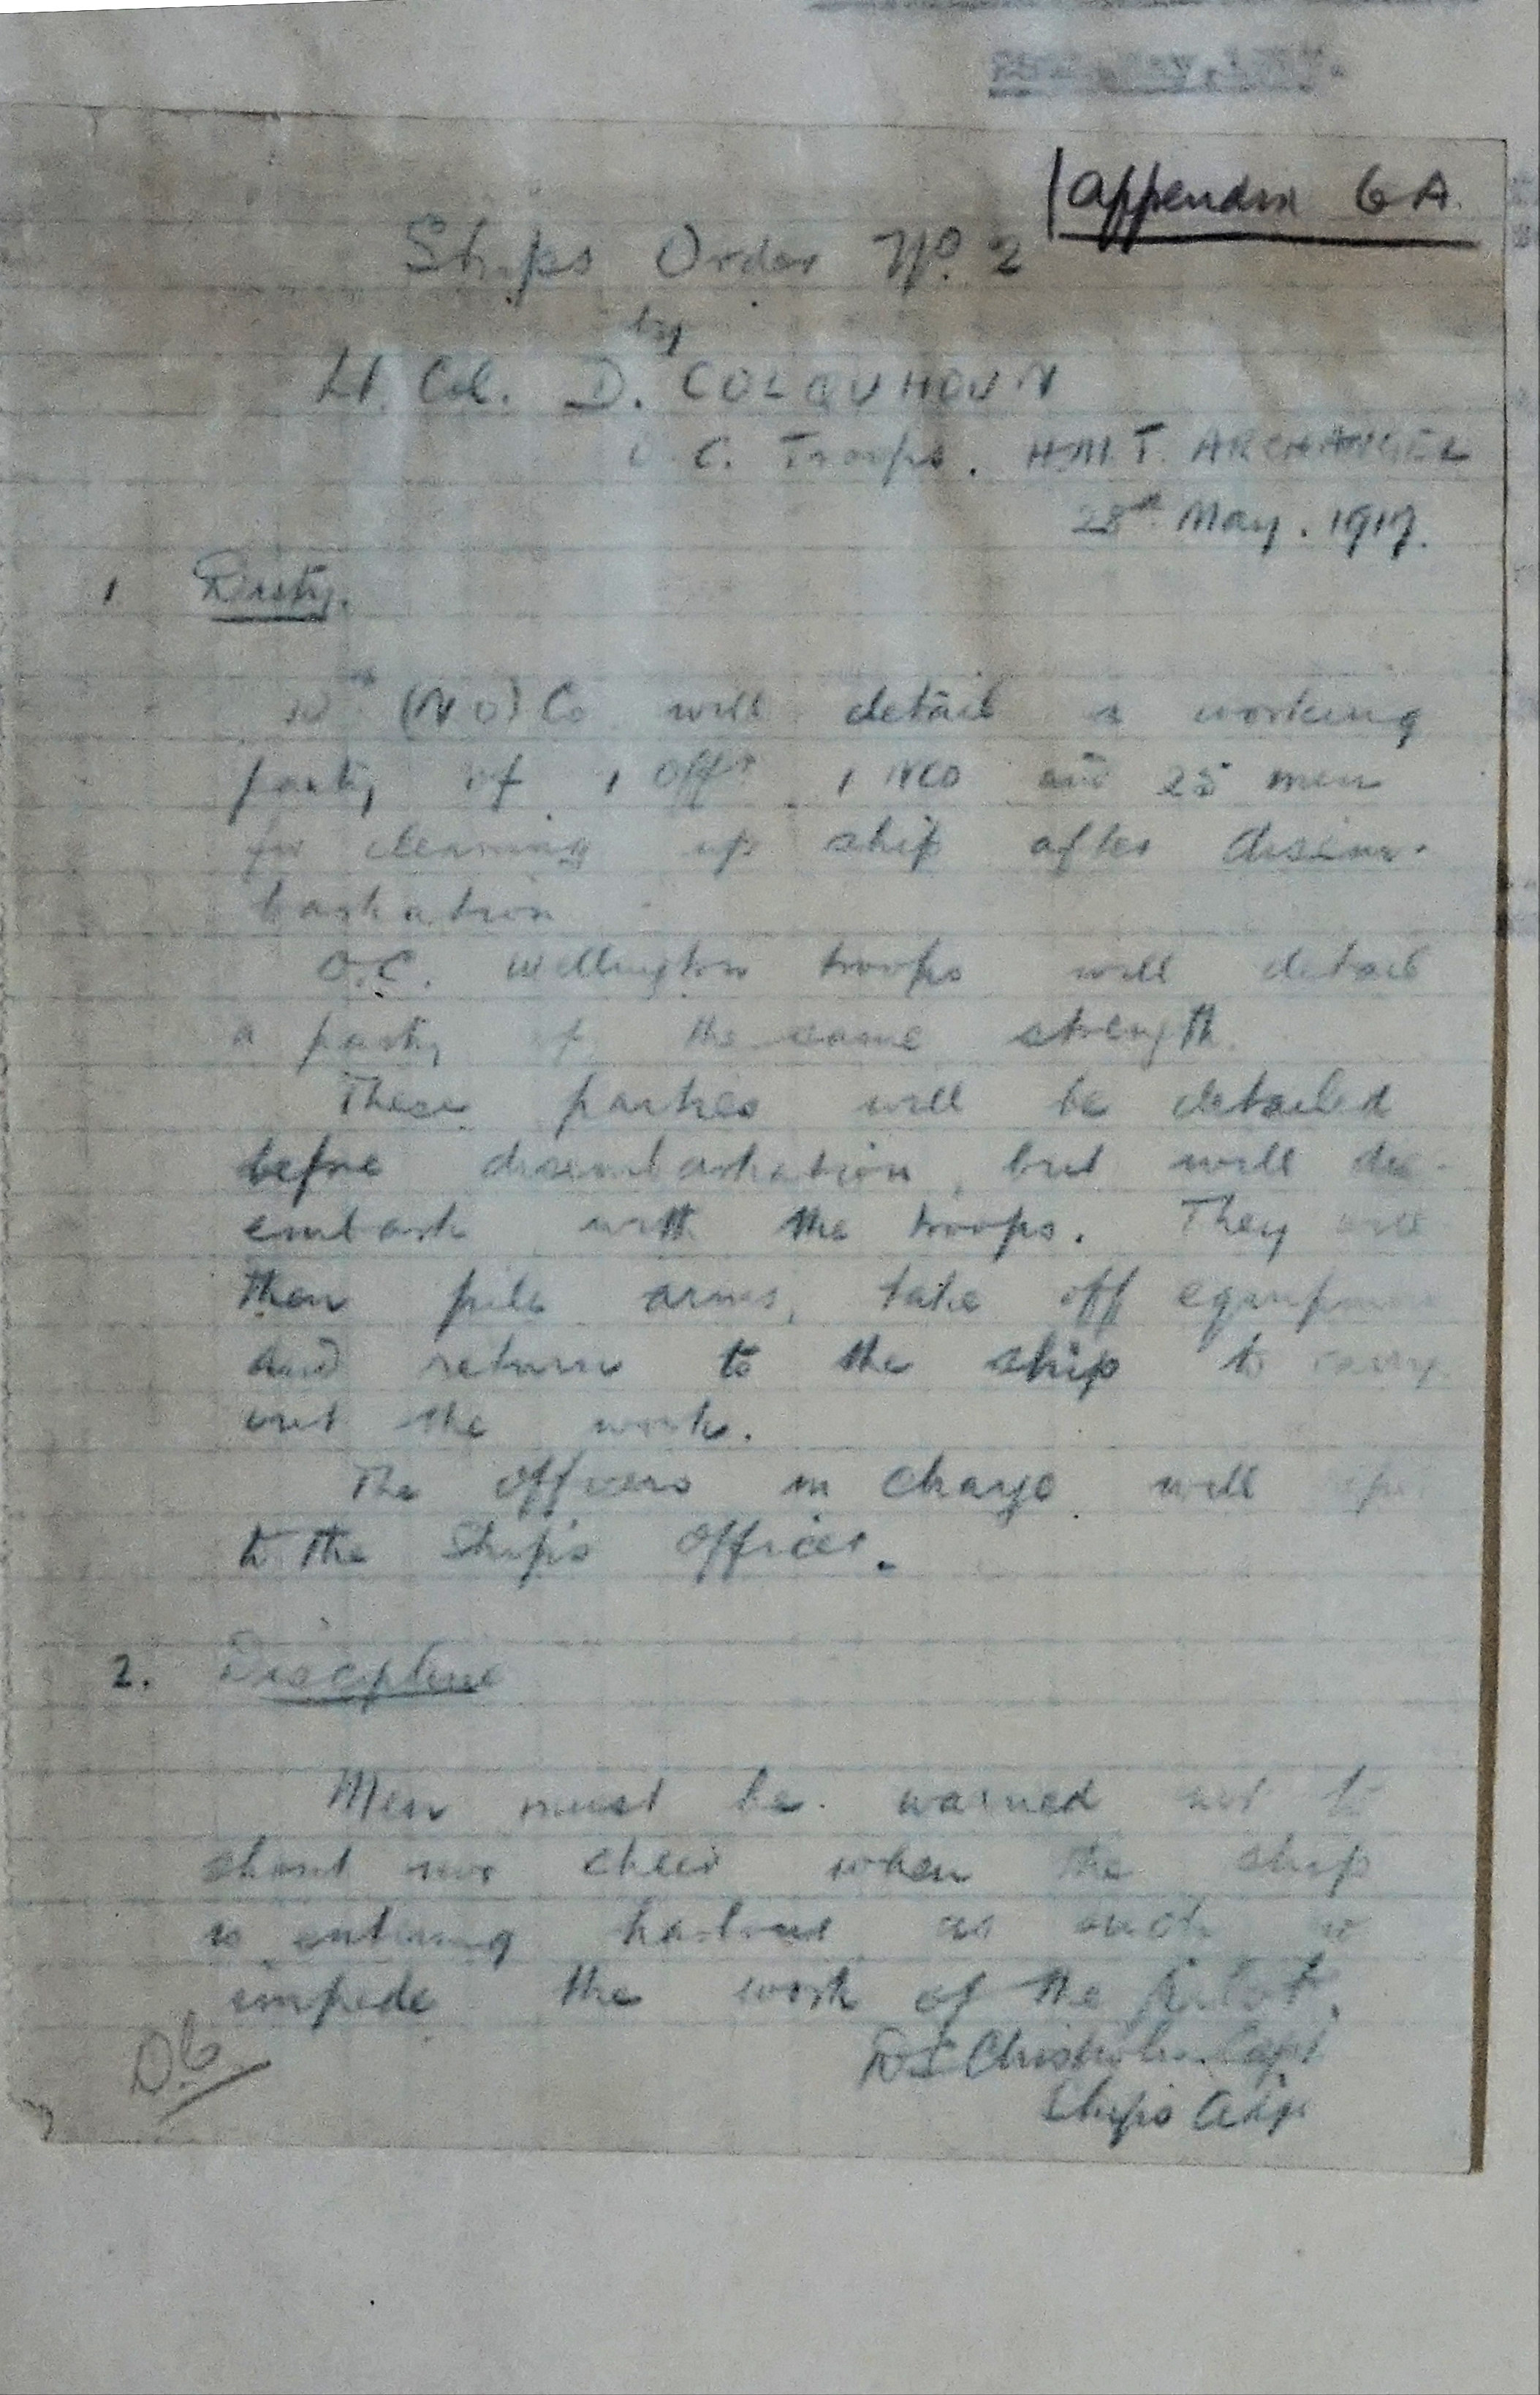 Appendix 6A
Ships Order No. 2
by
Lt. Col. D. COLQUHOUN
O.C. Troops. H.M.T. ARCHANGEL
28th May. 1917.
1 Duty.
(NO) Co will detail a working
party of 1 Offr 1 NCO and 25 men
for cleaning up ship after disem-
barkation
O.C. Wellington troops will detail
a party of the same strength.
These parties will be detailed
before disembarkation, but will dis-
embark with the troops. They will
then pile arms, take off equipment
and return to the ship to carry
out the work.
The Officers in charge will
to the Ship's Officer.
2. Discipline
Men must be warned not to
shout nor cheer when the ship
is entering harbour as such
impede the work of the pilot.
Chisholm Capt
Ships Adjt